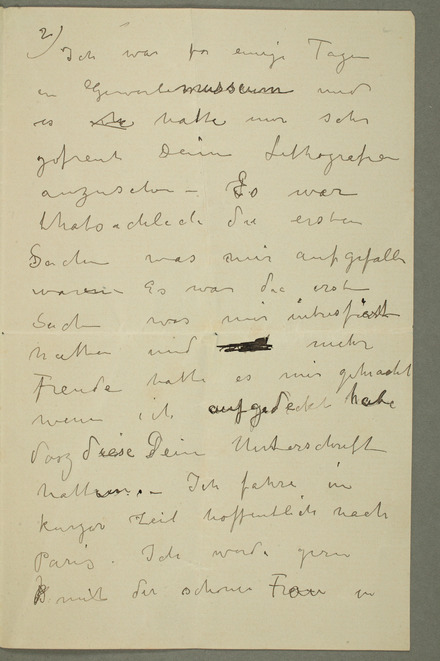 2)
Ich war for einige Tagen
in Gewerbemusseum und
es hatte mir sehr
gefreut Deine Lithografien
anzusehen – Es war
thatsachlich die ersten
Sachen was mir aufgefallen
waren Es war die ersten
Sachen was mir
hatten und mehr
Freude hatte es mir gemacht
wenn ich aufgedeckt habe
das diese Dein Unterschrift
hatten. – Ich fahre in
kurzer Zeit hoffentlich nach
Paris. Ich werde gern
mit der schönen Frau in